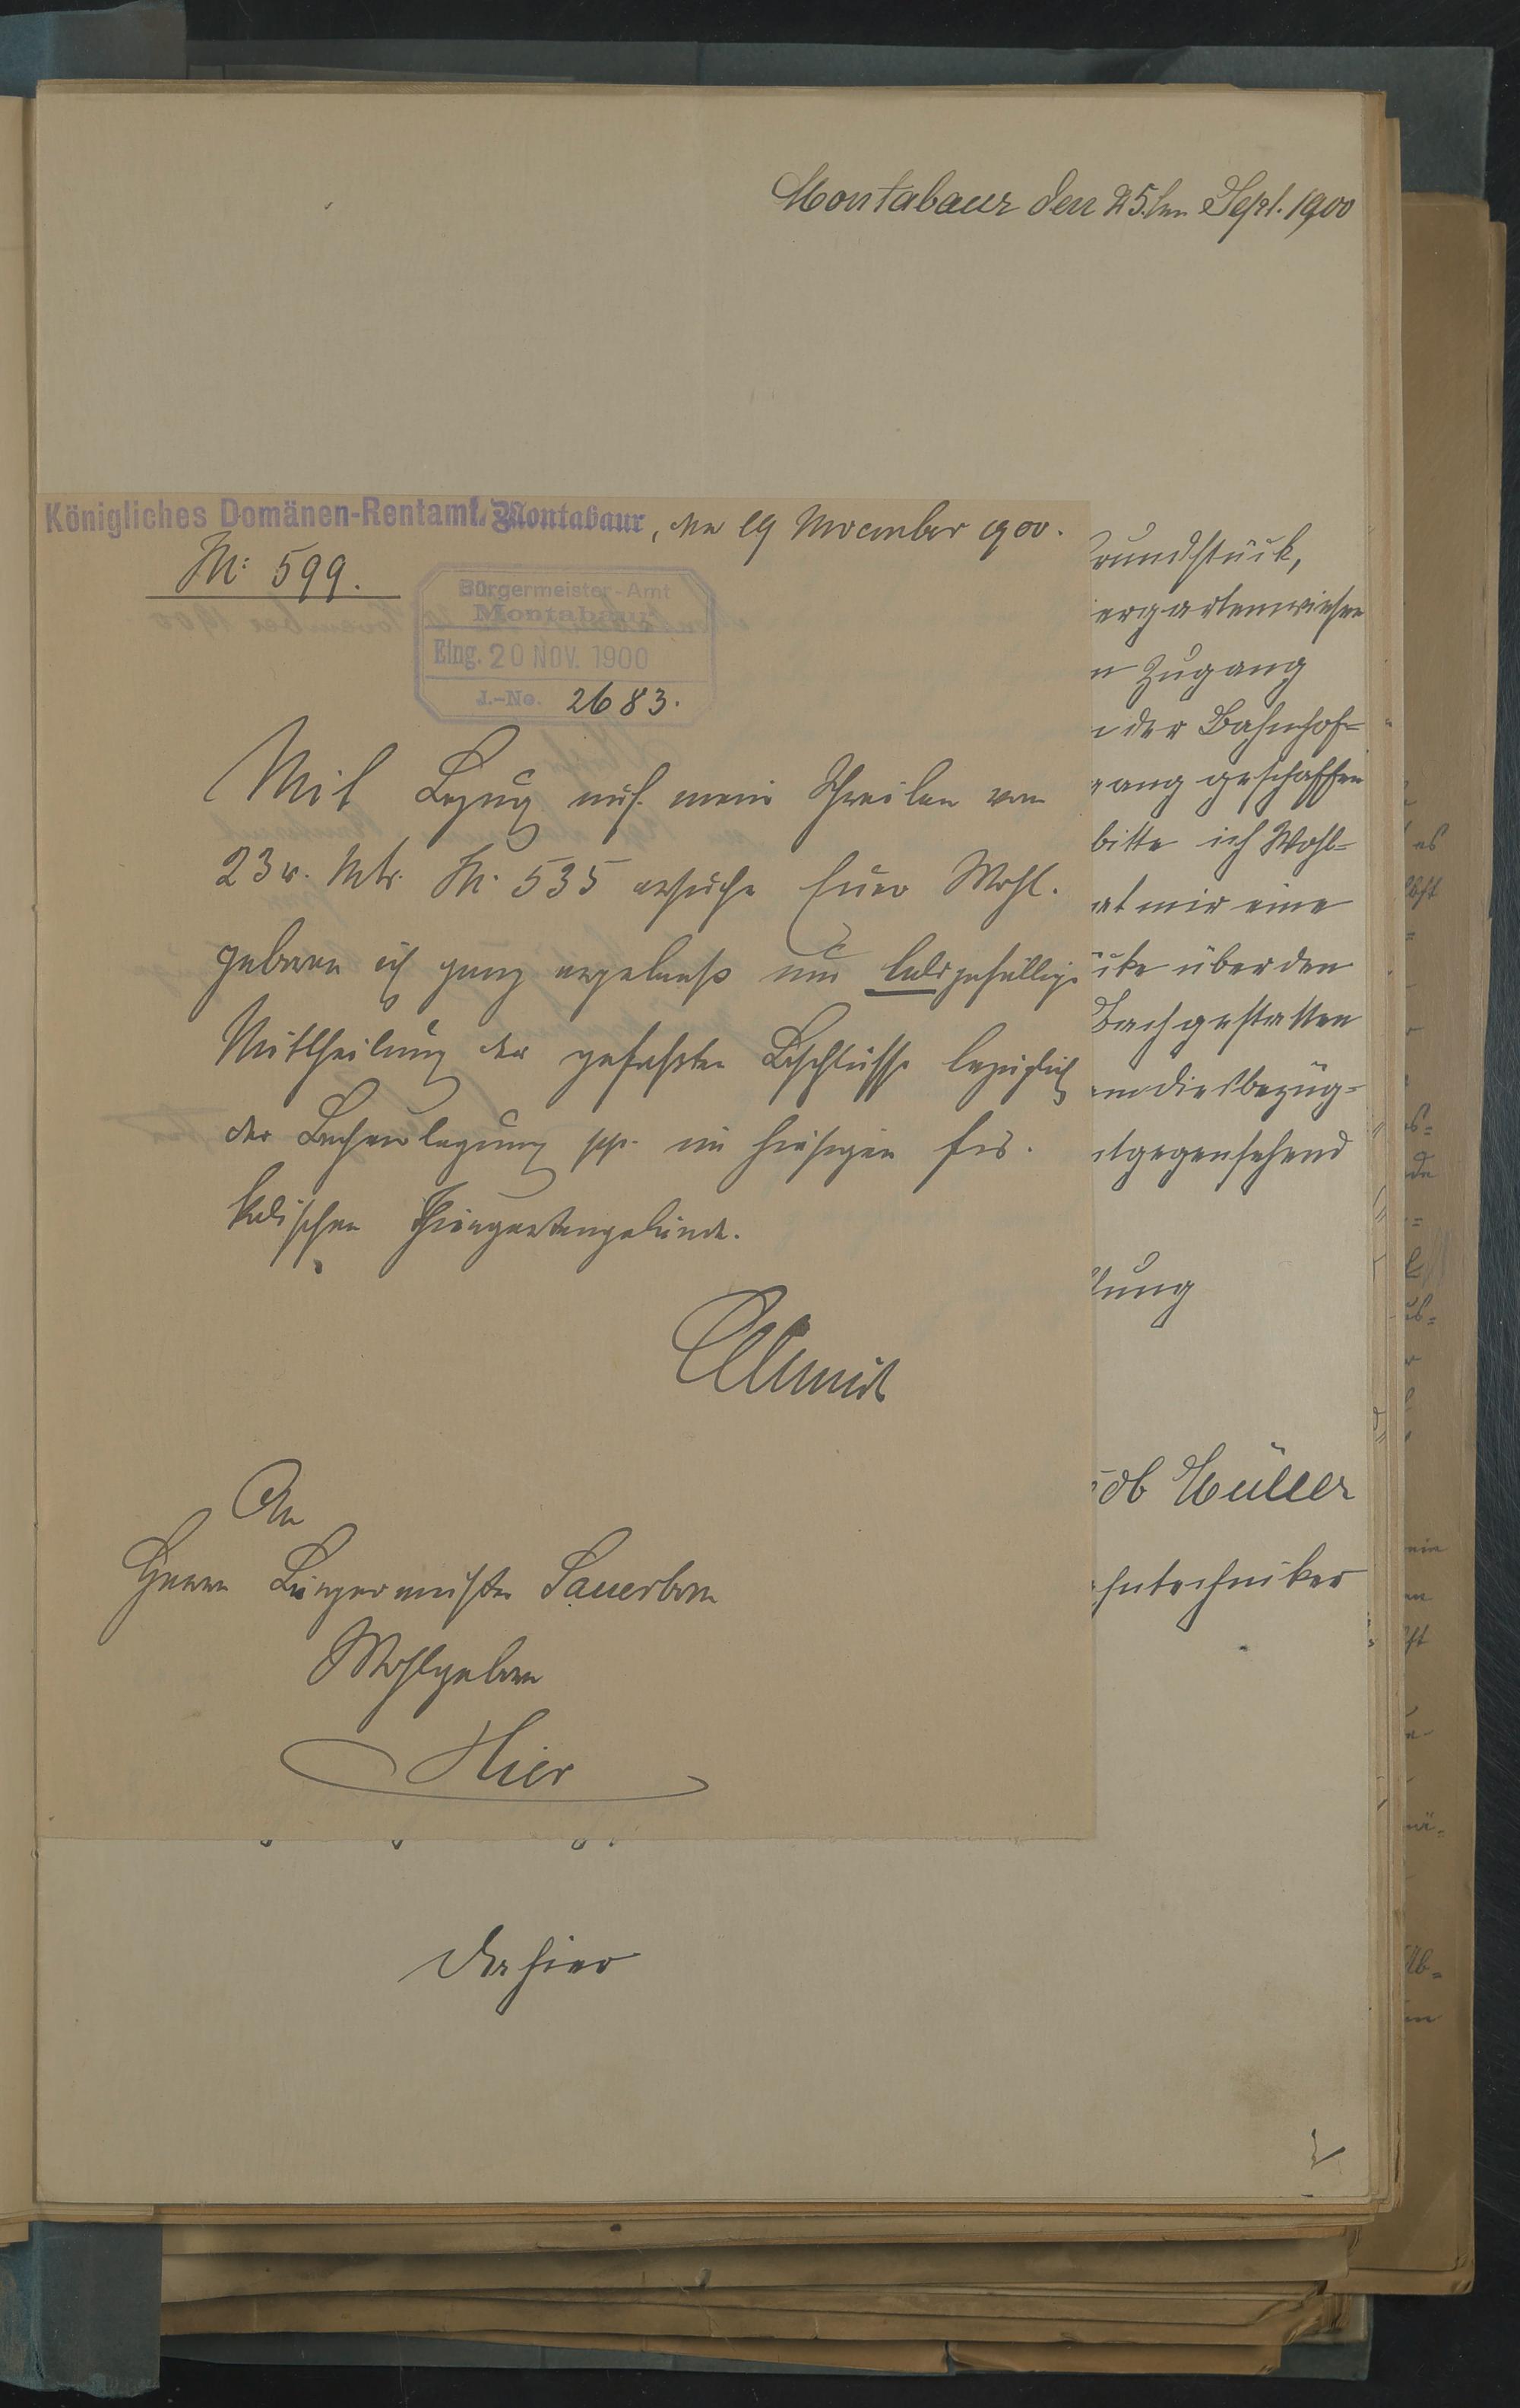 Montabaur den 25.ten Sept. 1900
Königliches Domänen-Rentamt. Montabaur, den 19 November 1900.
N: 599.
Bürgermeister-Amt
Montabaur
Eing. 20 NOV. 1900
J.-No. 2683.
Mit Bezug auf mein Schreiben vom
23 v. Mts. N. 535 ersuche Euer Wohl-
geboren ich ganz ergebenst um baldgefällige
Mittheilung der gefaßten Beschlüsse bezüglich
der Bachverlegung pp. im hiesigen fis-
kalischen Thiergartengelände.
An
Herrn Bürgermeister Sauerborn
Wohlgeboren
Hier
rundstück,
ergartenwiesen
n Zugang
der Bahnhof-
gang geschaffen
bitte ich Wohl-
at mir eine
cke über den
Bach gestatten
em diesbezüg-
tgegensehend
tung
ob Müller
hntechniker
Dahier